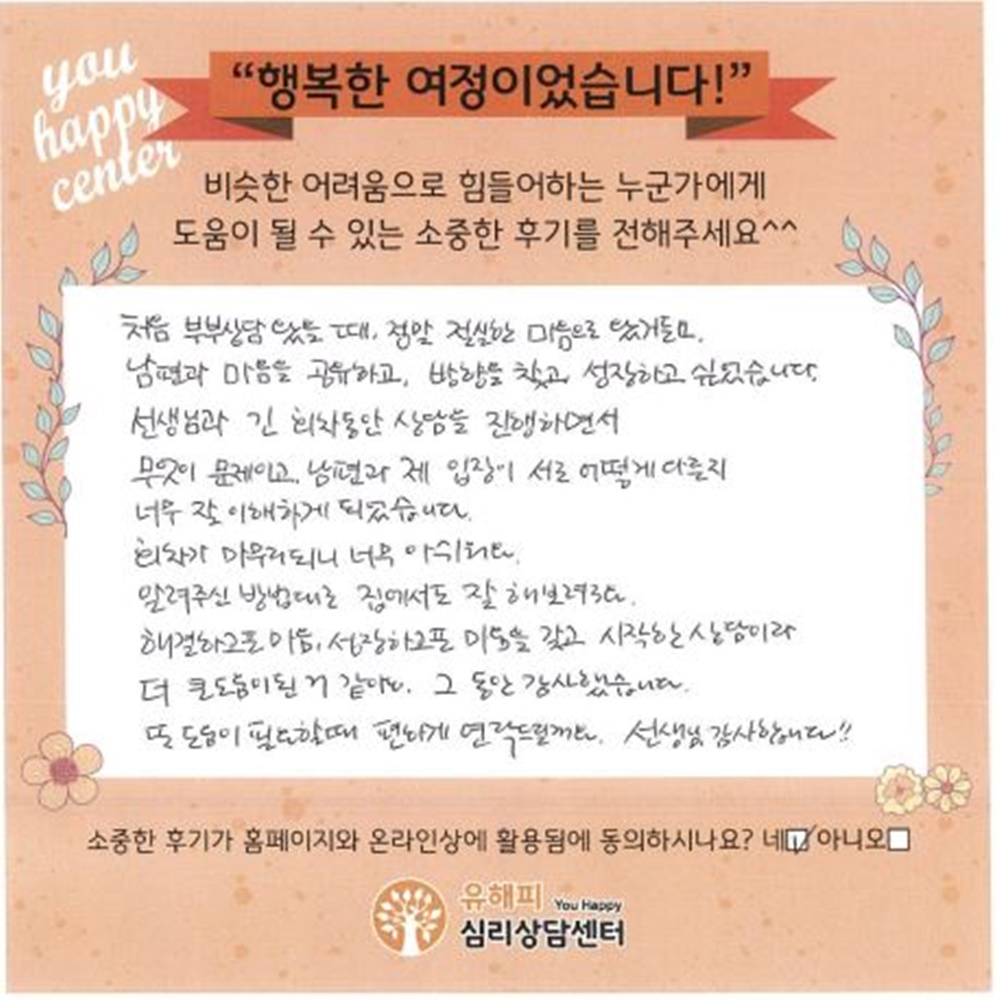 you
happy
center
“행복한 여정이었습니다!”
비슷한 어려움으로 힘들어하는 누군가에게
도움이 될 수 있는 소중한 후기를 전해주세요^^
처음 부부상담 왔을 때, 정말 절실한 마음으로 왔거든요.
남편과 마음을 공유하고, 방향을 찾고 성장하고 싶었습니다.
선생님과 긴 회차동안 상담을 진행하면서
무엇이 문제이고, 남편과 제 입장이 서로 어떻게 다른지
너무 잘 이해하게 되었습니다.
회차가 마무리되니 너무 아쉬워요.
알려주신 방법대로 집에서도 잘 해보려구요.
해결하고픈 마음, 성장하고픈 마음을 갖고 시작한 상담이라
더 큰 도움이 된 거 같아요. 그 동안 감사했습니다.
또 도움이 필요할때 편하게 연락드릴게요. 선생님 감사합니다!!
소중한 후기가 홈페이지와 온라인상에 활용됨에 동의하시나요? 네☑ 아니오☐
유해피 You Happy
심리상담센터